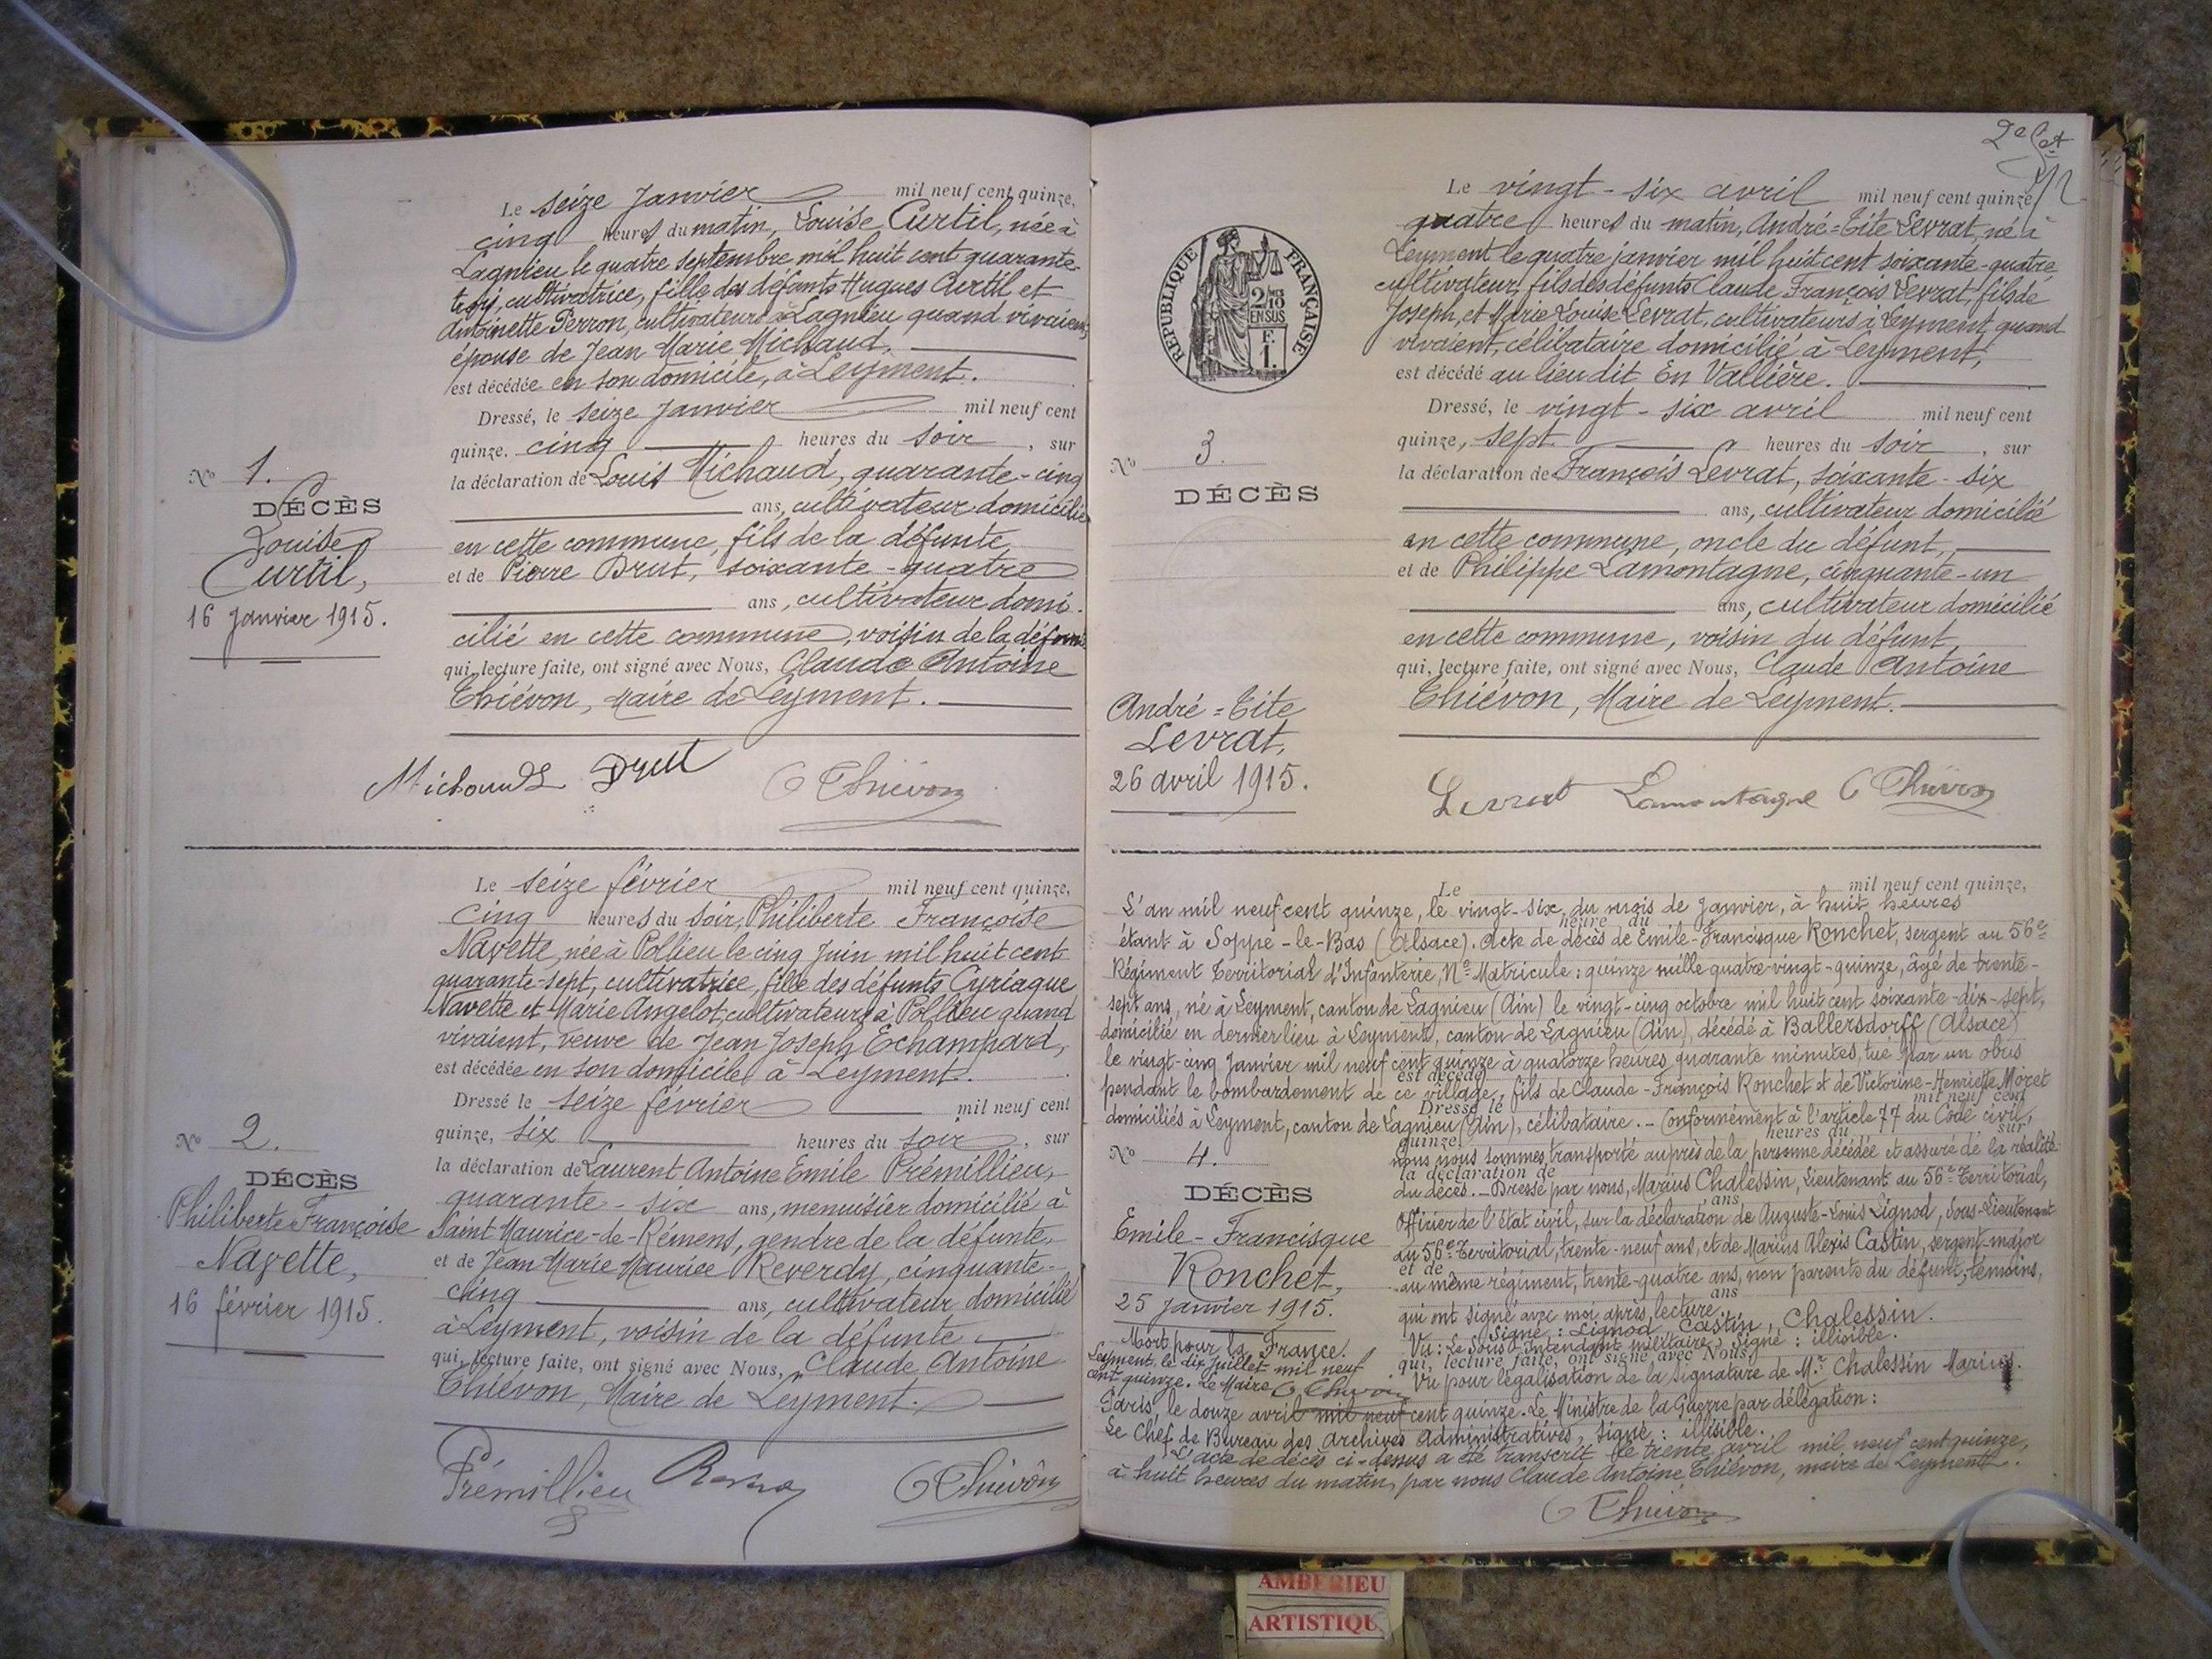 Le seize Janvier mil neuf cent quinze,
cinq heures du matin, Louise Curtil, née à
Lagnieu le quatre septembre mil huit cent quarante-
trois, cultivatrice, fille des défunts Hugues Curtil et
Antoinette Perron, cultivateurs à Lagnieu quand vivaient,
épouse de Jean Marie Michaud,
est décédée en son domicile, à Leyment.
Dressé, le seize Janvier mil neuf cent
quinze, cinq heures du soir, sur
la déclaration de Louis Michaud, quarante-cinq
ans, cultivateur domicilié
en cette commune, fils de la défunte,
et de Pierre Brut, soixante-quatre
ans, cultivateur domi-
cilié en cette commune, voisin de la défunte
qui, lecture faite, ont signé avec Nous, Claude Antoine
Thiévon, Maire de Leyment.
No 1.
DÉCÈS
Louise
Curtil,
16 Janvier 1915.
Michaud L Brut C Thiévon
Le seize février mil neuf cent quinze,
cinq heures du soir, Philiberte Françoise
Navette, née à Pollieu le cinq Juin mil huit cent
quarante-sept, cultivatrice, fille des défunts Cyriaque
Navette et Marie Angelot, cultivateurs à Pollieu quand
vivaient, veuve de Jean Joseph Echampard,
est décédée en son domicile à Leyment.
Dressé le seize février mil neuf cent
quinze, six heures du soir, sur
la déclaration de Laurent Antoine Emile Prémillieu,
quarante-six ans, menuisier domicilié à
Saint Maurice-de-Rémens, gendre de la défunte,
et de Jean Marie Maurice Reverdy, cinquante-
cinq ans, cultivateur domicilié
à Leyment, voisin de la défunte
qui, lecture faite, ont signé avec Nous, Claude Antoine
Thiévon, Maire de Leyment.
No 2.
DÉCÈS
Philiberte Françoise
Navette,
16 février 1915.
Prémillieu C Thiévon
2e
RÉPUBLIQUE FRANÇAISE
2/10
EN SUS
F.
1.
Le vingt-six avril mil neuf cent quinze,
quatre heures du matin, André=Tite Levrat, né à
Leyment le quatre janvier mil huit cent soixante-quatre
cultivateur, fils des défunts Claude François Levrat, fils de
Joseph, et Marie Louise Levrat, cultivateurs à Leyment, quand
vivaient, célibataire domicilié à Leyment,
est décédé au lieu dit En Vallière.
Dressé, le vingt-six avril mil neuf cent
quinze, sept heures du soir, sur
la déclaration de François Levrat, soixante-six
ans, cultivateur domicilié
en cette commune, oncle du défunt,
et de Philippe Lamontagne, cinquante-un
ans, cultivateur domicilié
en cette commune, voisin du défunt,
qui, lecture faite, ont signé avec Nous, Claude Antoine
Thiévon, Maire de Leyment.
No 3.
DÉCÈS
André=Tite
Levrat,
26 avril 1915.
Levrat Lamontagne C Thiévon
Le mil neuf cent quinze,
L'an mil neuf cent quinze, le vingt-six, du mois de Janvier, à huit heures
heure du
étant à Soppe-le-Bas (Alsace). Acte de décès de Emile-Francisque Ronchet, sergent au 56e
Régiment Territorial d'Infanterie, No Matricule: quinze mille quatre-vingt-quinze, âgé de trente-
sept ans, né à Leyment, canton de Lagnieu (Ain) le vingt-cinq octobre mil huit cent soixante-dix-sept,
domicilié en dernier lieu à Leyment, canton de Lagnieu (Ain), décédé à Ballersdorff (Alsace)
le vingt-cinq Janvier mil neuf cent quinze à quatorze heures quarante minutes, tué par un obus
est décédé
pendant le bombardement de ce village, fils de Claude-François Ronchet et de Victorine-Henriette Moret
Dressé le mil neuf cent
domiciliés à Leyment, canton de Lagnieu (Ain), célibataire.- Conformément à l'article 77 du Code civil,
quinze, heures du sur
nous nous sommes transporté auprès de la personne décédée et assuré de la réalité
la déclaration de
du décès.- Dressé par nous, Marius Chalessin, Lieutenant au 56e Territorial,
ans
Officier de l'état civil, sur la déclaration de Auguste-Louis Lignod, Sous-Lieutenant
au 56e Territorial, trente-neuf ans, et de Marius Alexis Castin, sergent-major
et de
au même régiment, trente-quatre ans, non parents du défunt, témoins,
ans
qui ont signé avec moi après lecture.
Signé: Lignod, Castin, Chalessin.
Vu: Le Sous-Intendant militaire, Signé: illisible.
qui, lecture faite, ont signé avec Nous,
Vu pour légalisation de la signature de Mr. Chalessin Marius.
No 4.
DÉCÈS
Emile-Francisque
Ronchet,
25 Janvier 1915.
Mort pour la France.
Leyment, le dix juillet mil neuf
cent quinze. Le Maire C Thiévon
Paris, le douze avril mil neuf cent quinze. Le Ministre de la Guerre par délégation:
Le Chef de Bureau des Archives Administratives, Signé: illisible.
L'acte de décès ci-dessus a été transcrit le trente avril mil neuf cent quinze,
à huit heures du matin, par nous Claude Antoine Thiévon, maire de Leyment.
C Thiévon
AMBERIEU
ARTISTIQU